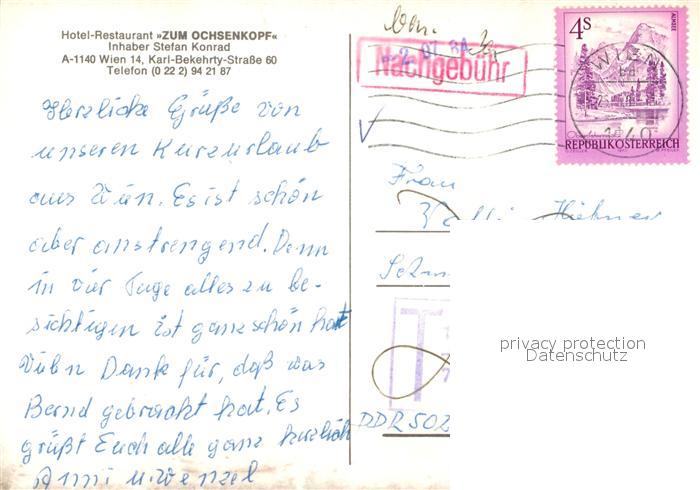 Hotel-Restaurant »ZUM OCHSENKOPF«
Inhaber Stefan Konrad
A-1140 Wien 14, Karl-Bekehrty-Straße 60
Telefon (0 22 2) 94 21 87
Herzliche Grüße von
unseren Kurzurlaub
aus Wien. Es ist schön
aber anstrengend. Denn
in vier Tage alles zu be-
sichtigen ist ganz schön hart
Vielen Dank für, daß was
Bernd gebracht hat. Es
grüßt Euch alle ganz herzlich
Anni u. Wenzel
-2. 07. 84
Nachgebühr
4S
ALMSEE
WIEN
1140
REPUBLIK ÖSTERREICH
Frau
T
DDR 502
privacy protection
Datenschutz